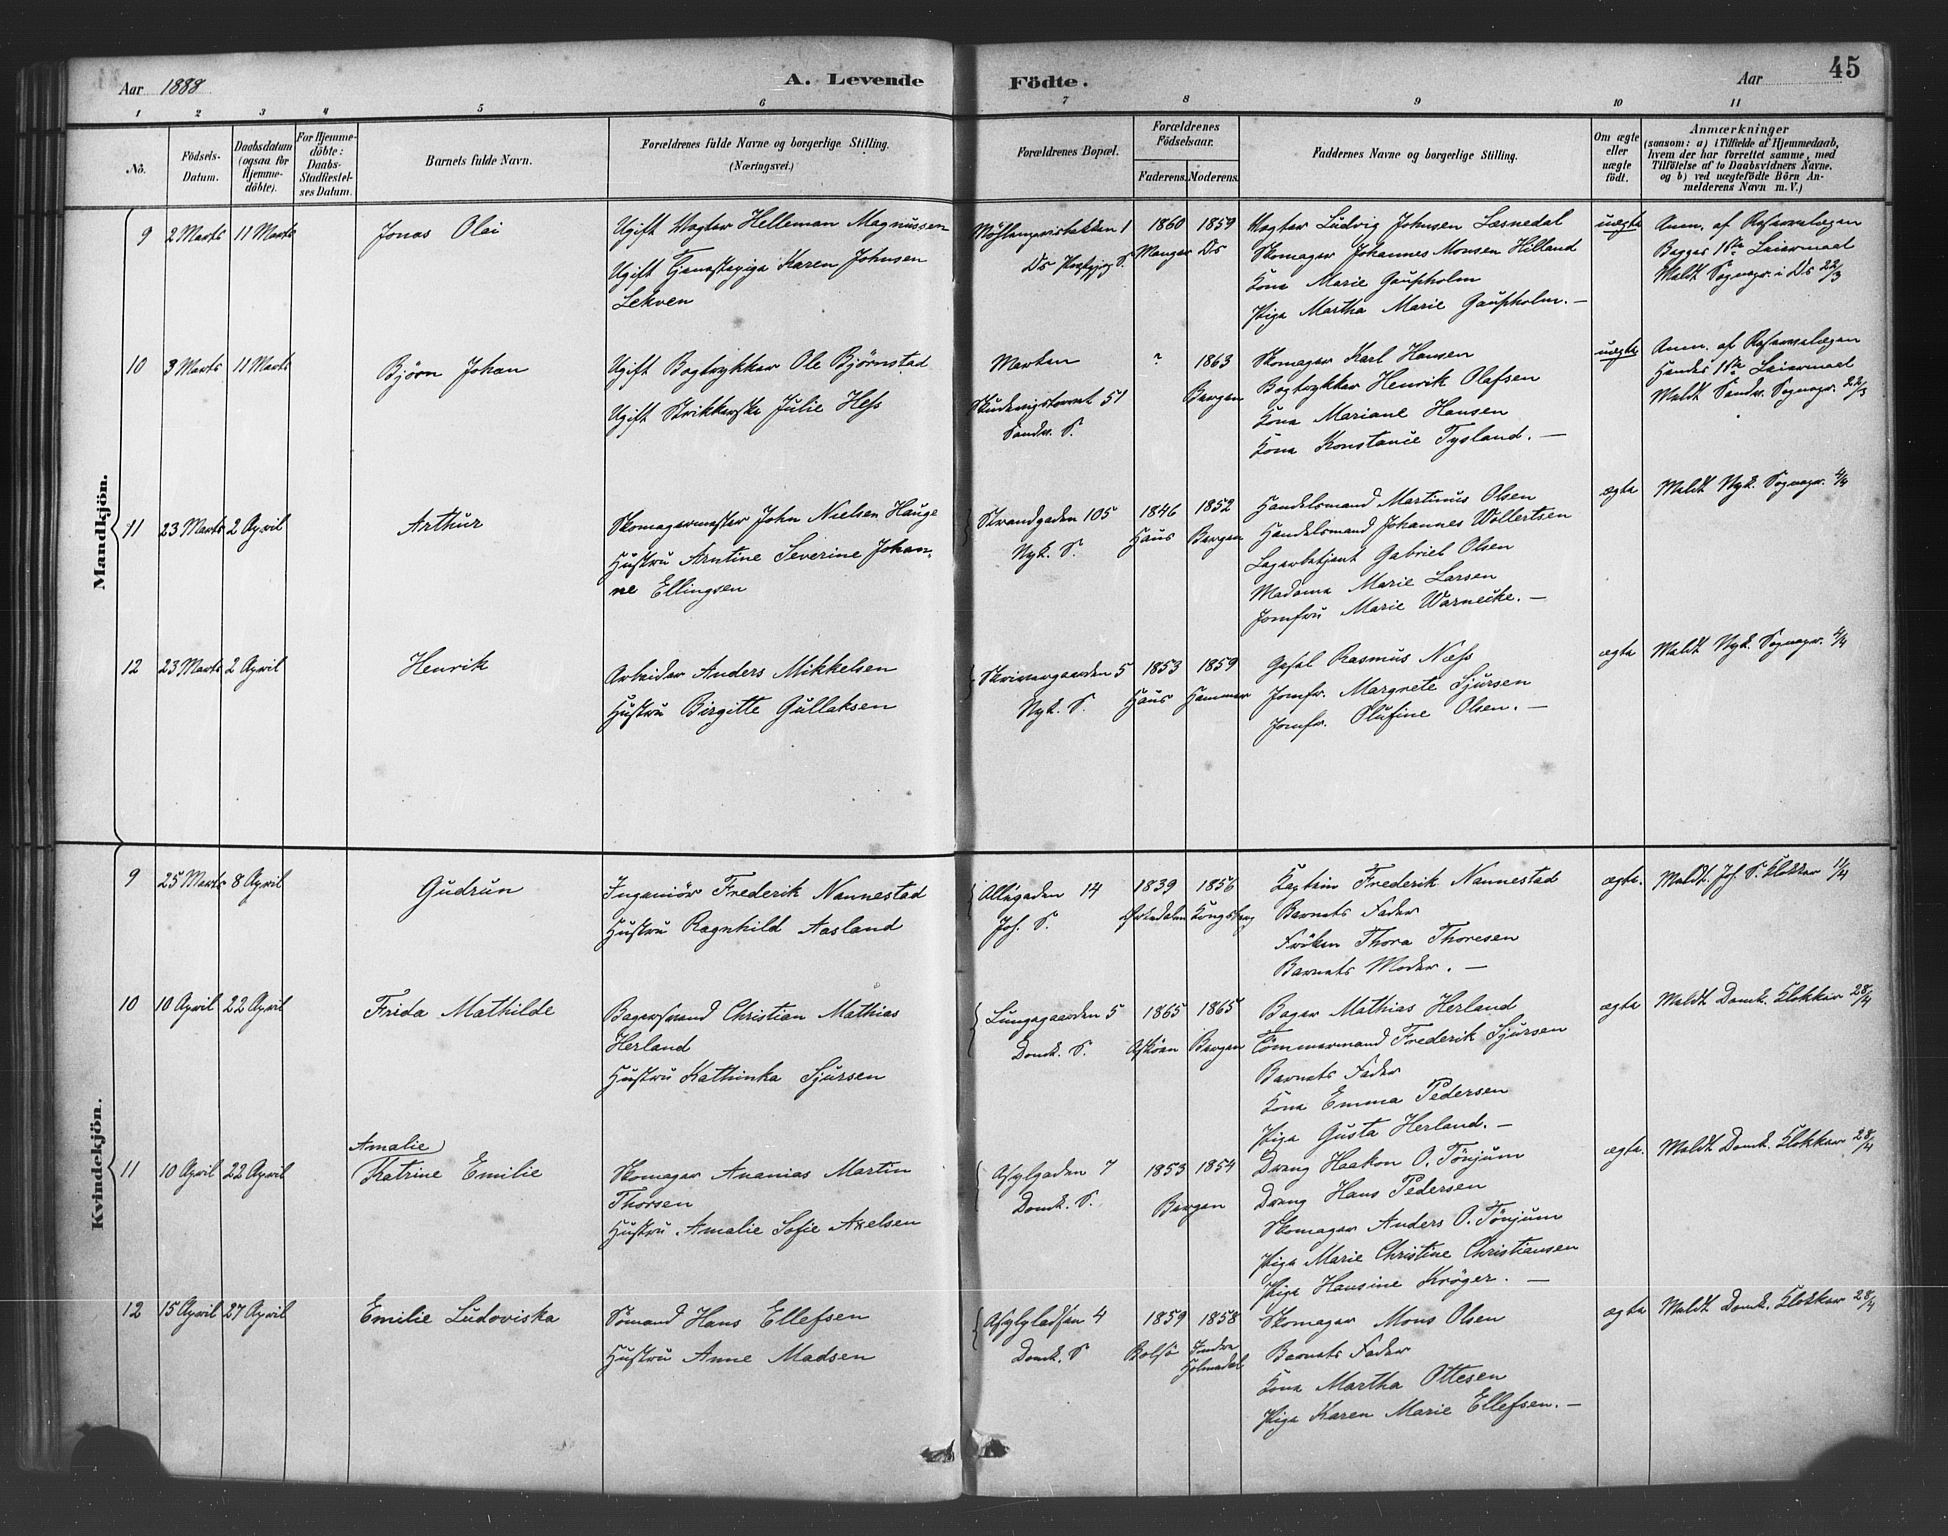 Aar 1888
A. Levende
Födte.
Aar
45
1 2 3 4 5 6 7 8 9 10 11
No.
Födsels-Datum.
Daabsdatum (ogsaa for Hjemme-döbte).
For Hjemme-döbte: Daabs-Stadfæstel-ses Datum.
Barnets fulde Navn.
Forældrenes fulde Navne og borgerlige Stilling.
(Næringsvei.)
Forældrenes Bopæl.
Forældrenes Födselsaar.
Faderens. Moderens.
Faddernes Navne og borgerlige Stilling.
Om ægte eller uægte födt.
Anmærkninger
(saasom: a) i Tilfælde af Hjemmedaab,
hvem der har forrettet samme, med
Tilföielse af to Daabsvidners Navne.
og b) ved uægtefödte Börn An-
melderens Navn m. V.)
Mandkjön.
9 2 Marts 11 Marts
Jonas Olai
Ugift Vogter Helleman Magnussen
Ugift Tjenestepige Karen Johnsen
Lekven
Möhlenprisbakken 1
1860 1859
Manger Ds
Vogter Ludvig Johnsen Læsnedal
Skomager Johannes Monsen Hilland
Kona Marie Gaupholm
Pige Martha Marie Gaupholm. —
uægte
Anm. af Reservelægen
Begges 1ste Leiermaal
Meldt Sognepr. i Ds 22/3
10 3 Marts 11 Marts
Björn Johan
Ugift Bogtrykker Ole Björnstad
Ugift Strikkerske Julie Hess
Marken
Skudevigstorvet 51
Sandv. S.
? 1863
Bergen
Skomager Karl Hansen
Bogtrykker Henrik Olafsen
Kona Mariane Hansen
Kona Konstance Tysland. —
uægte
Anm. af Reservelægen
Hendes 1ste Leiermaal
Meldt Sandv. Sognepr. 22/3
11 23 Marts 2 April
Arthur
Skomagermester John Nielsen Hauge
Hustru Arntine Severine Johan-
ne Ellingsen
Strandgaden 105
Nyk. S.
1846 1852
Haus Bergen
Handelsmand Martinus Olsen
Handelsmand Johannes Wollertsen
Lagerbetjent Gabriel Olsen
Madame Marie Larsen
Jomfru Marie Warnecke. —
ægte
Meldt Nyk. Sognepr. 4/4
12 23 Marts 2 April
Henrik
Arbeider Anders Mikkelsen
Hustru Birgitte Gullaksen
Skrivergaarden 5
Nyk. S.
1853 1859
Haus Hammer
Gesel Rasmus Næss
Jomfr. Margrete Sjursen
Jomfr. Olufine Olsen. —
ægte
Meldt Nyk. Sognepr. 4/4
Kvindekjön.
9 25 Marts 8 April
Gudrun
Ingeniör Frederik Nannestad
Hustru Ragnhild Aasland
Allégaden 14
Joh. S.
1839 1856
Kongsberg
Kaptein Frederik Nannestad
Barnets Fader
Fröken Thora Thoresen
Barnets Moder. —
ægte.
Meldt. Joh. S. Klokker 11/4
10 10 April 22 April
Frida Mathilde
Bagersvend Christian Mathias
Herland
Hustru Kathinka Sjursen
Lungegaarden 5
Domk. S.
1865 1865
Asköen Bergen
Bager Mathias Herland
Tömmermand Frederik Sjursen
Barnets Fader
Kona Emma Pedersen
Pige Gusta Herland. —
ægte
Meldt Domk. Klokker 28/4
Amalie
11 10 April 22 April
Katrine Emilie
Skomager Ananias Martin
Thorsen
Hustru Amalie Sofie Axelsen
Asylgaden 7
Domk. S.
1853 1854
Bergen
Dreng Haakon O. Tönjum
Dreng Hans Pedersen
Skomager Anders O. Tönjum
Pige Marie Christine Christiansen
Pige Hansine Kröger. —
ægte.
Meldt Domk. Klokker 28/4
12 15 April 27 April
Emilie Ludoviska
Sömand Hans Ellefsen
Hustru Anne Madsen
Asylpladsen 4
Domk. S
1859 1858
Bolsö Indre Holmedal
Skomager Mons Olsen
Barnets Fader
Kona Martha Ottesen
Pige Karen Marie Ellefsen. —
ægte
Meldt Domk. Klokker 28/4